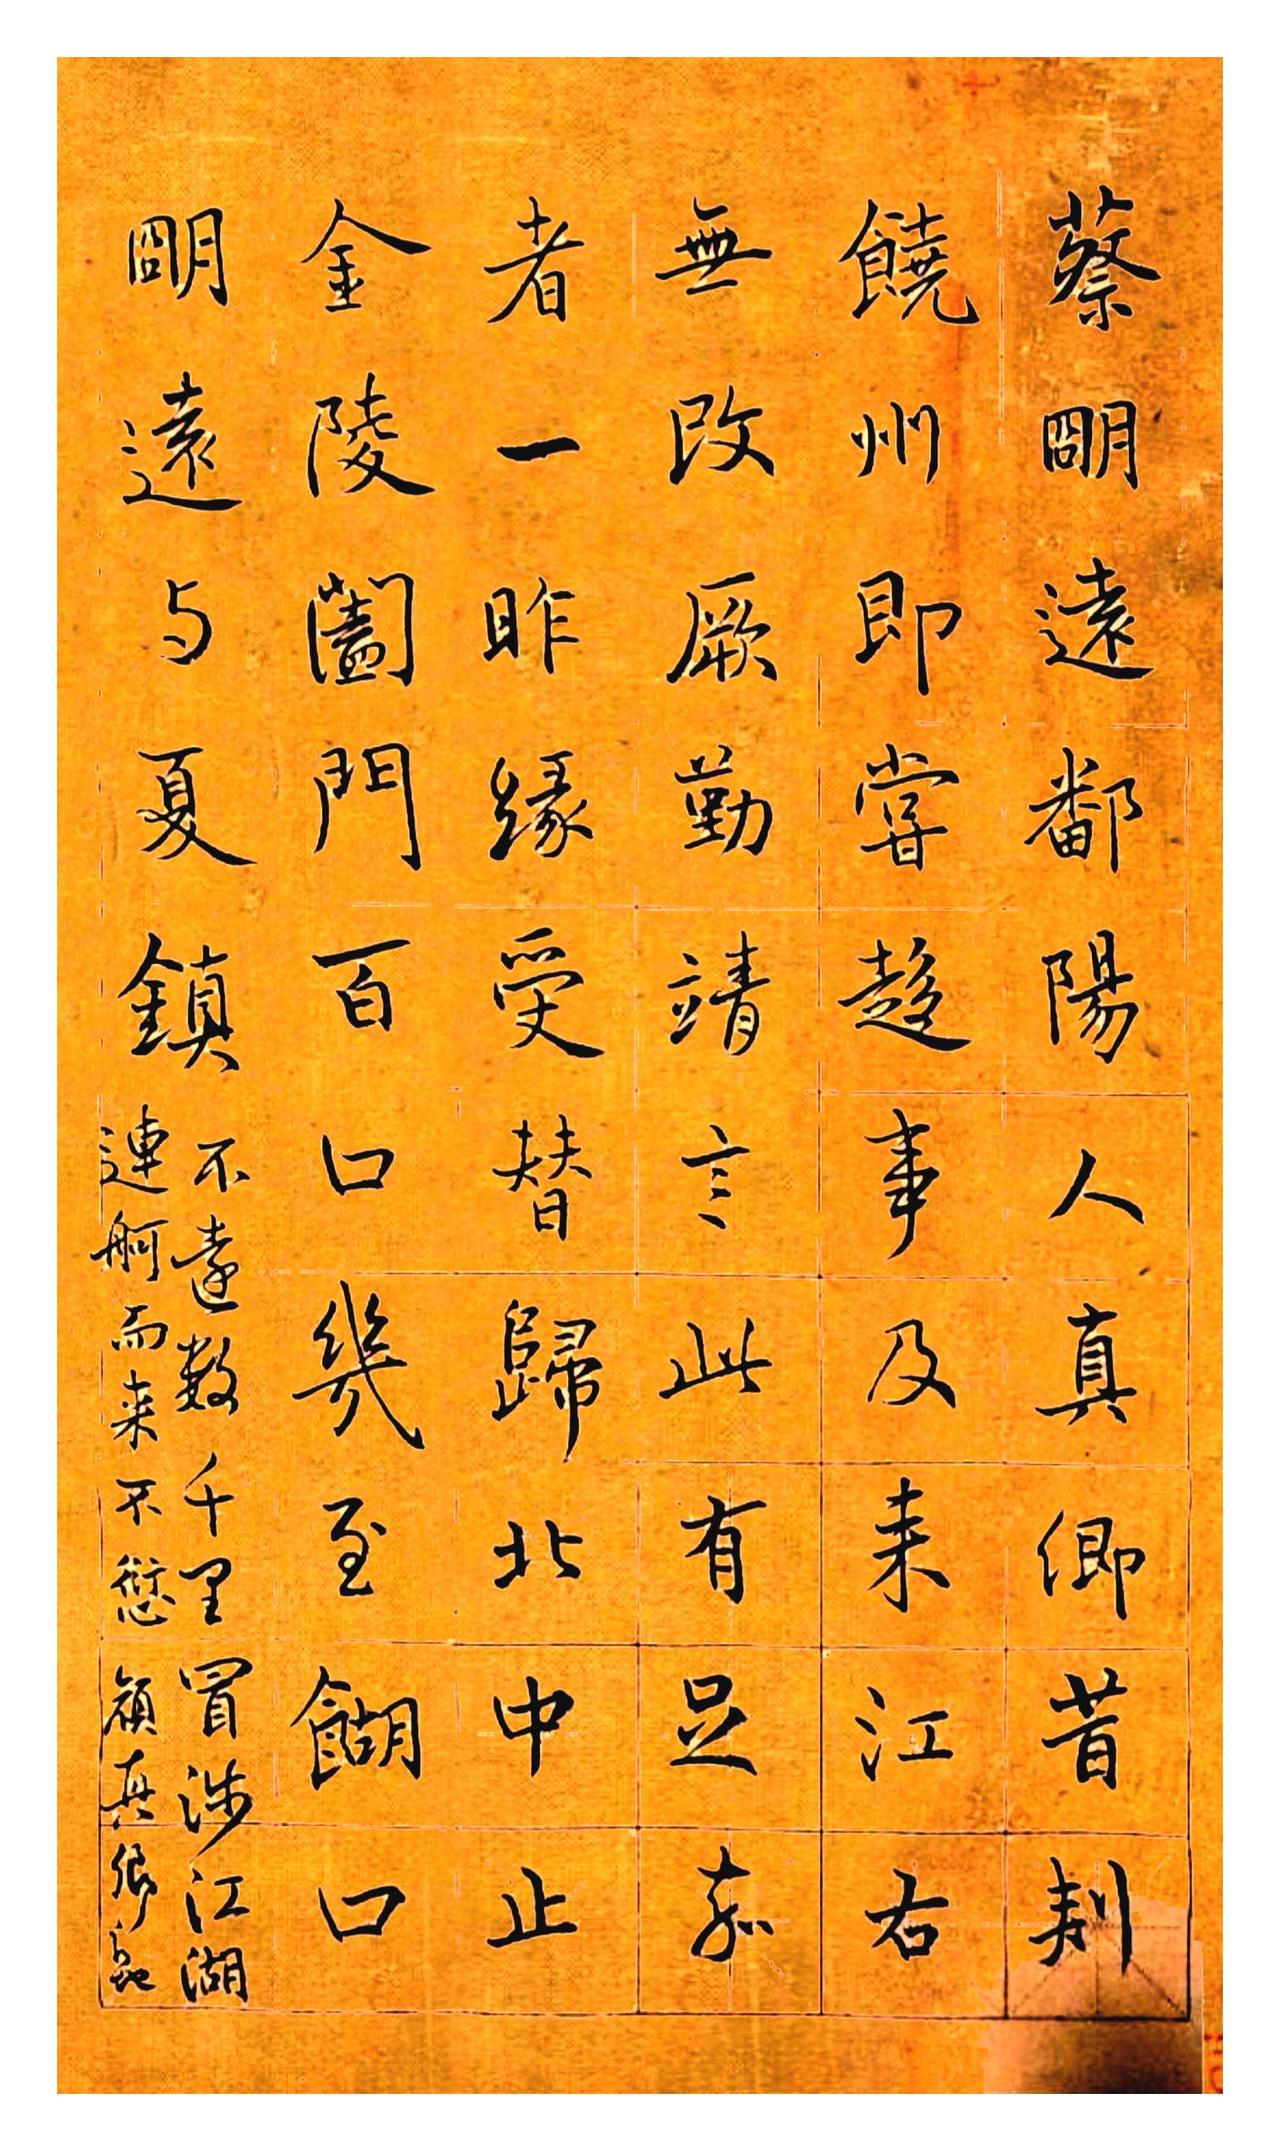 蔡明遠鄱陽人真卿昔刺
饒州即嘗趍事及来江右
無改厥勤靖言此有足命
者一昨緣受替歸北中止
金陵闔門百口幾至餬口
明遠与夏鎮
不遠數千里冒涉江湖
連舸而来不愆
顏真卿